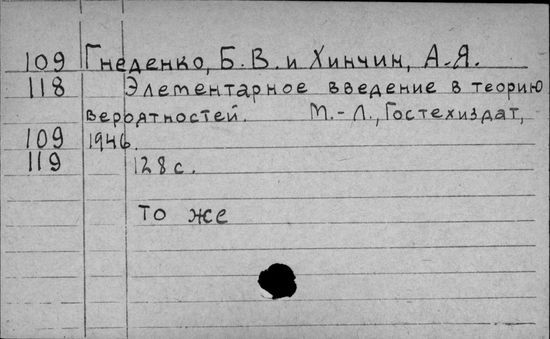 109 Гнеденко, Б.В. и Хинчин, А.Я.
118 Элементарное введение в теорию
вероятностей. М.-Л., Гостехиздат,
109 1946.
119 128 с.
то же